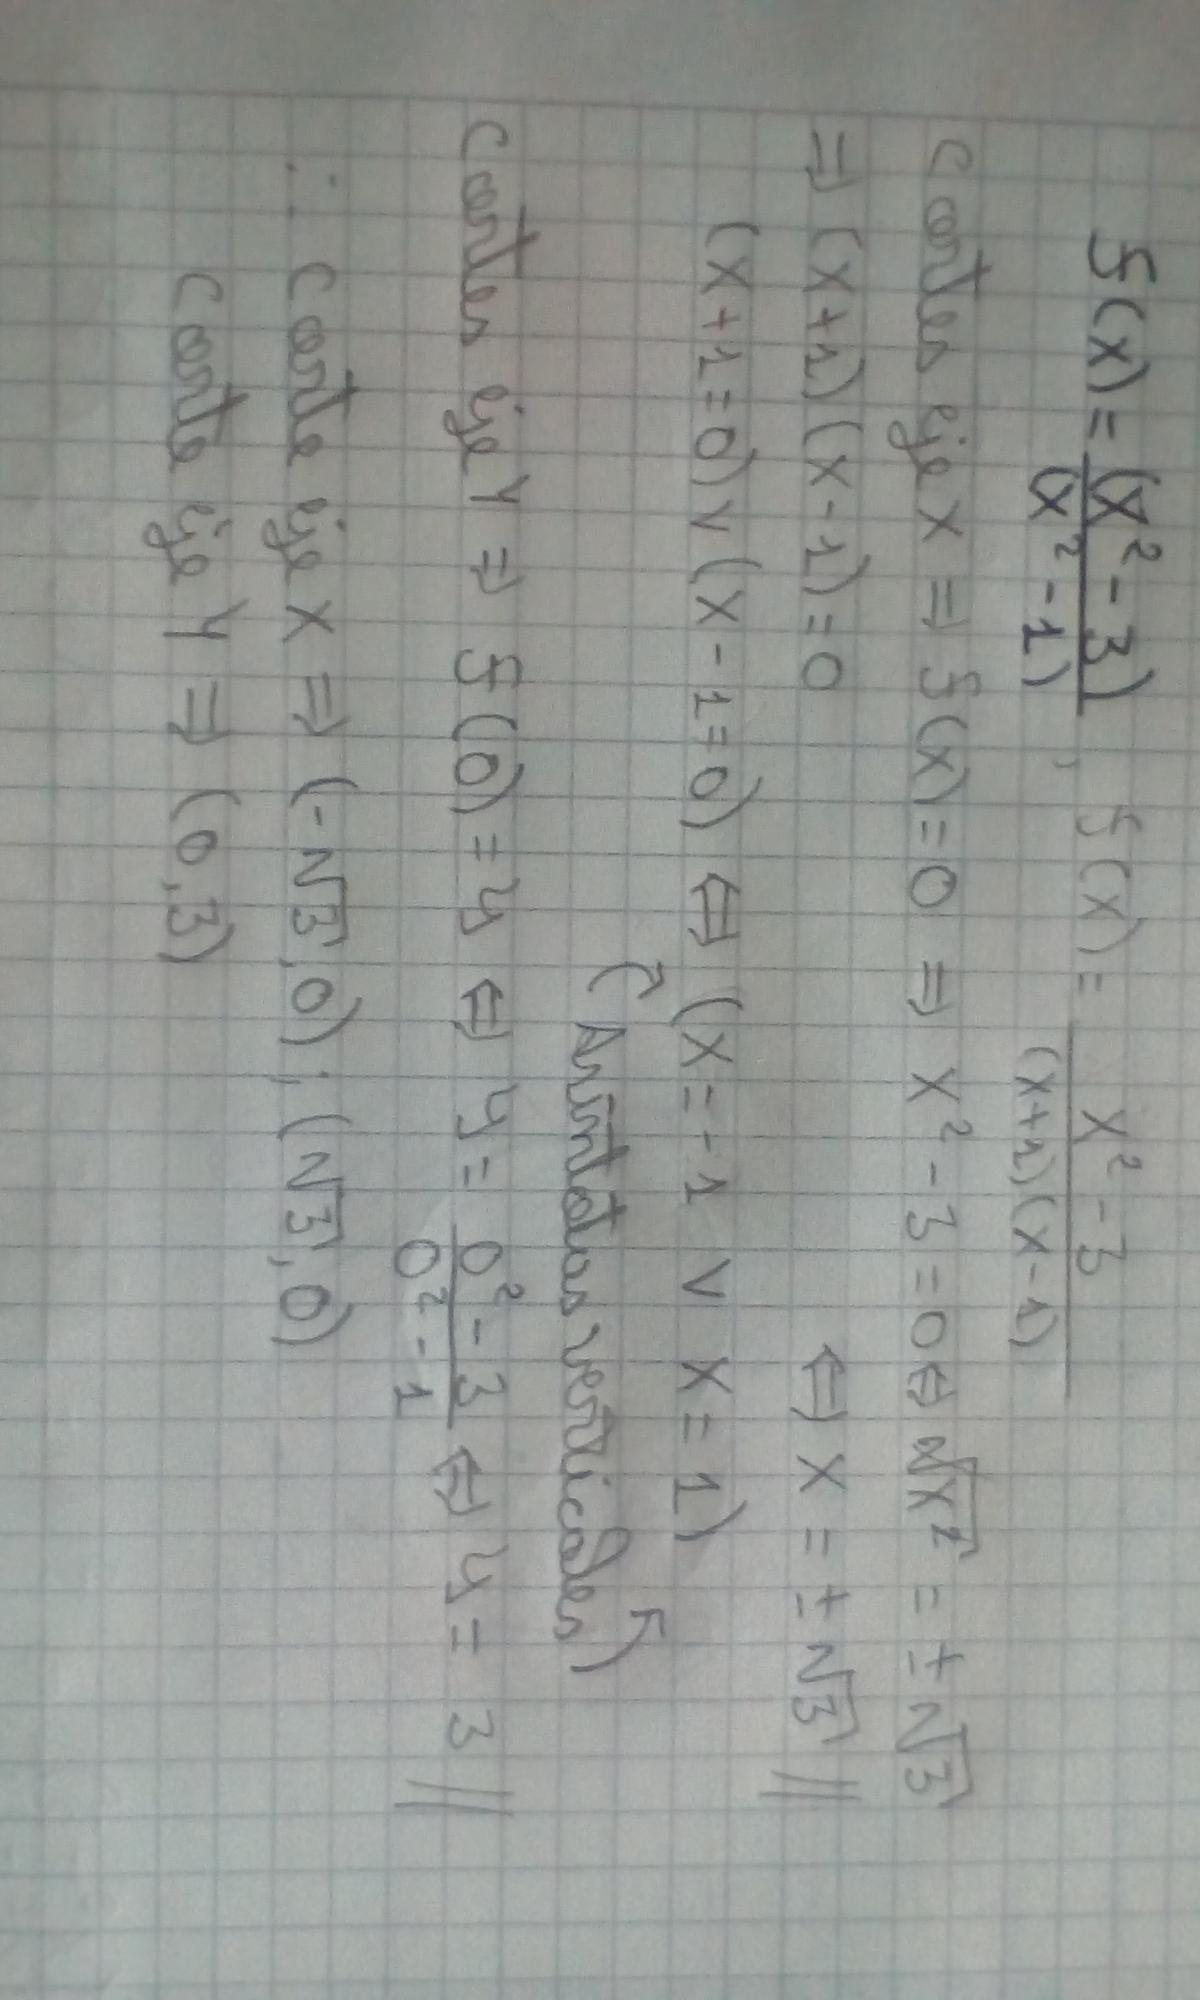 f(x) = (x² - 3) / (x² - 1) , f(x) = x² - 3 / (x+1)(x-1)
Cortes eje X ⇒ f(x) = 0 ⇒ x² - 3 = 0 ⇔ √x² = ± √3
⇒ (x+1)(x-1) = 0 ⇔ x = ± √3 //
(x+1=0) v (x-1=0) ⇔ (x=-1 v x=1)
(Asíntotas verticales)
Cortes eje Y ⇒ f(0) = y ⇔ y = 0² - 3 / 0² - 1 ⇔ y = 3 //
∴ Corte eje X ⇒ (-√3, 0) ; (√3, 0)
Corte eje Y ⇒ (0,3)